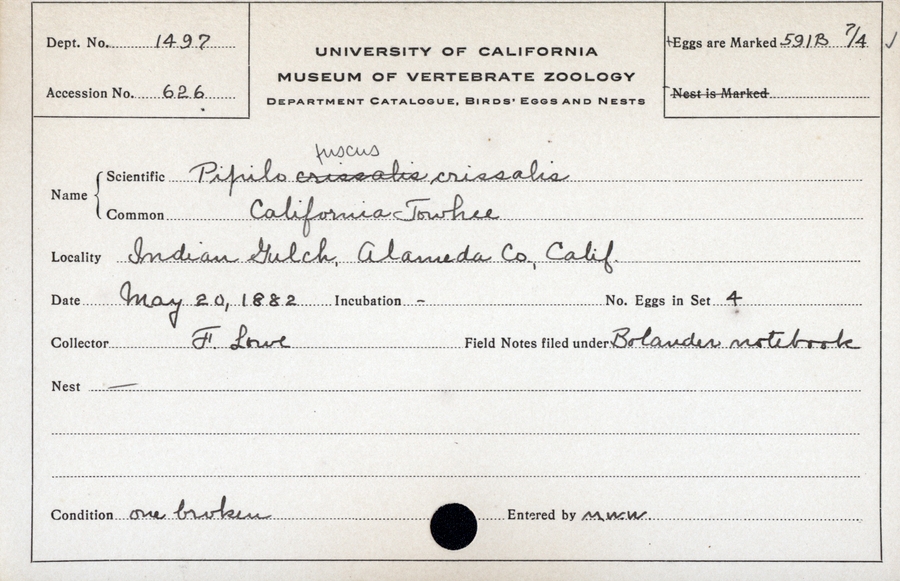 Dept. No. 1497
Accession No. 626
UNIVERSITY OF CALIFORNIA
MUSEUM OF VERTEBRATE ZOOLOGY
DEPARTMENT CATALOGUE, BIRDS' EGGS AND NESTS
Eggs are Marked 591B 7/4 ✓
Nest is Marked
fuscus
Name { Scientific Pipilo crissalis crissalis
Common California Towhee
Locality Indian Gulch, Alameda Co., Calif.
Date May 20, 1882 Incubation - No. Eggs in Set 4
Collector F. Lowe Field Notes filed under Bolander notebook
Nest —
Condition one broken Entered by m.w.w.